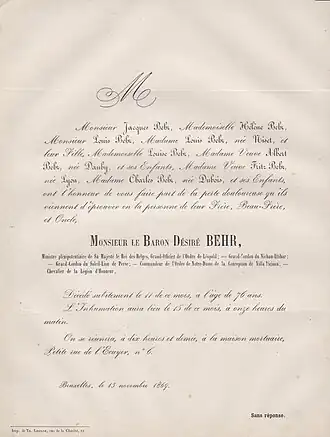 M
Monsieur Jacques Behr, Mademoiselle Hélène Behr,
Monsieur Louis Behr, Madame Louis Behr, née Niset, et
leur Fille, Mademoiselle Louise Behr, Madame Veuve Albert
Behr, née Danby, et ses Enfants, Madame Veuve Fritz Behr,
née Lyon, Madame Charles Behr, née Dubois, et ses Enfants,
ont l'honneur de vous faire part de la perte douloureuse qu'ils
viennent d'éprouver en la personne de leur Frère, Beau-Frère,
et Oncle,
MONSIEUR LE BARON DÉSIRÉ BEHR,
Ministre plénipotentiaire de Sa Majesté le Roi des Belges, Grand-Officier de l'Ordre de Léopold; — Grand-Cordon du Nichan-Iftihar;
— Grand-Cordon du Soleil-Lion de Perse; — Commandeur de l'Ordre de Notre-Dame de la Conception de Villa Viciosa; —
Chevalier de la Légion d'Honneur,
Décédé subitement le 11 de ce mois, à l'âge de 76 ans.
L'Inhumation aura lieu le 15 de ce mois, à onze heures du
matin.
On se réunira, à dix heures et demie, à la maison mortuaire,
Petite rue de l'Ecuyer, n° 6.
Bruxelles, le 13 novembre 1869.
Sans réponse.
Imp. de Th. rue de la Charité,